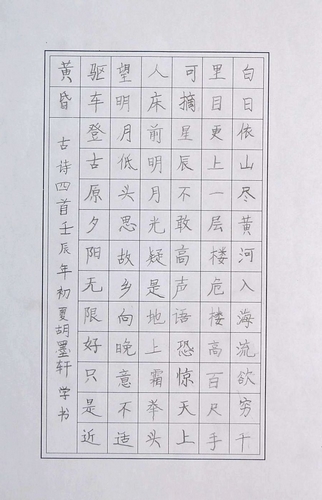 白日依山尽黄河入海流欲穷千
里目更上一层楼危楼高百尺手
可摘星辰不敢高声语恐惊天上
人床前明月光疑是地上霜举头
望明月低头思故乡向晚意不适
驱车登古原夕阳无限好只是近
黄昏 古诗四首壬辰年初夏胡墨轩学书